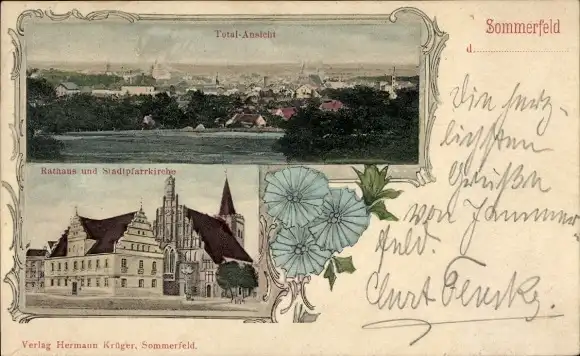 Total-Ansicht
Sommerfeld
d.
Rathaus und Stadtpfarrkirche
Die herz-
lichsten
Grüße
von Sommer-
feld.
Curt
Verlag Hermann Krüger, Sommerfeld.